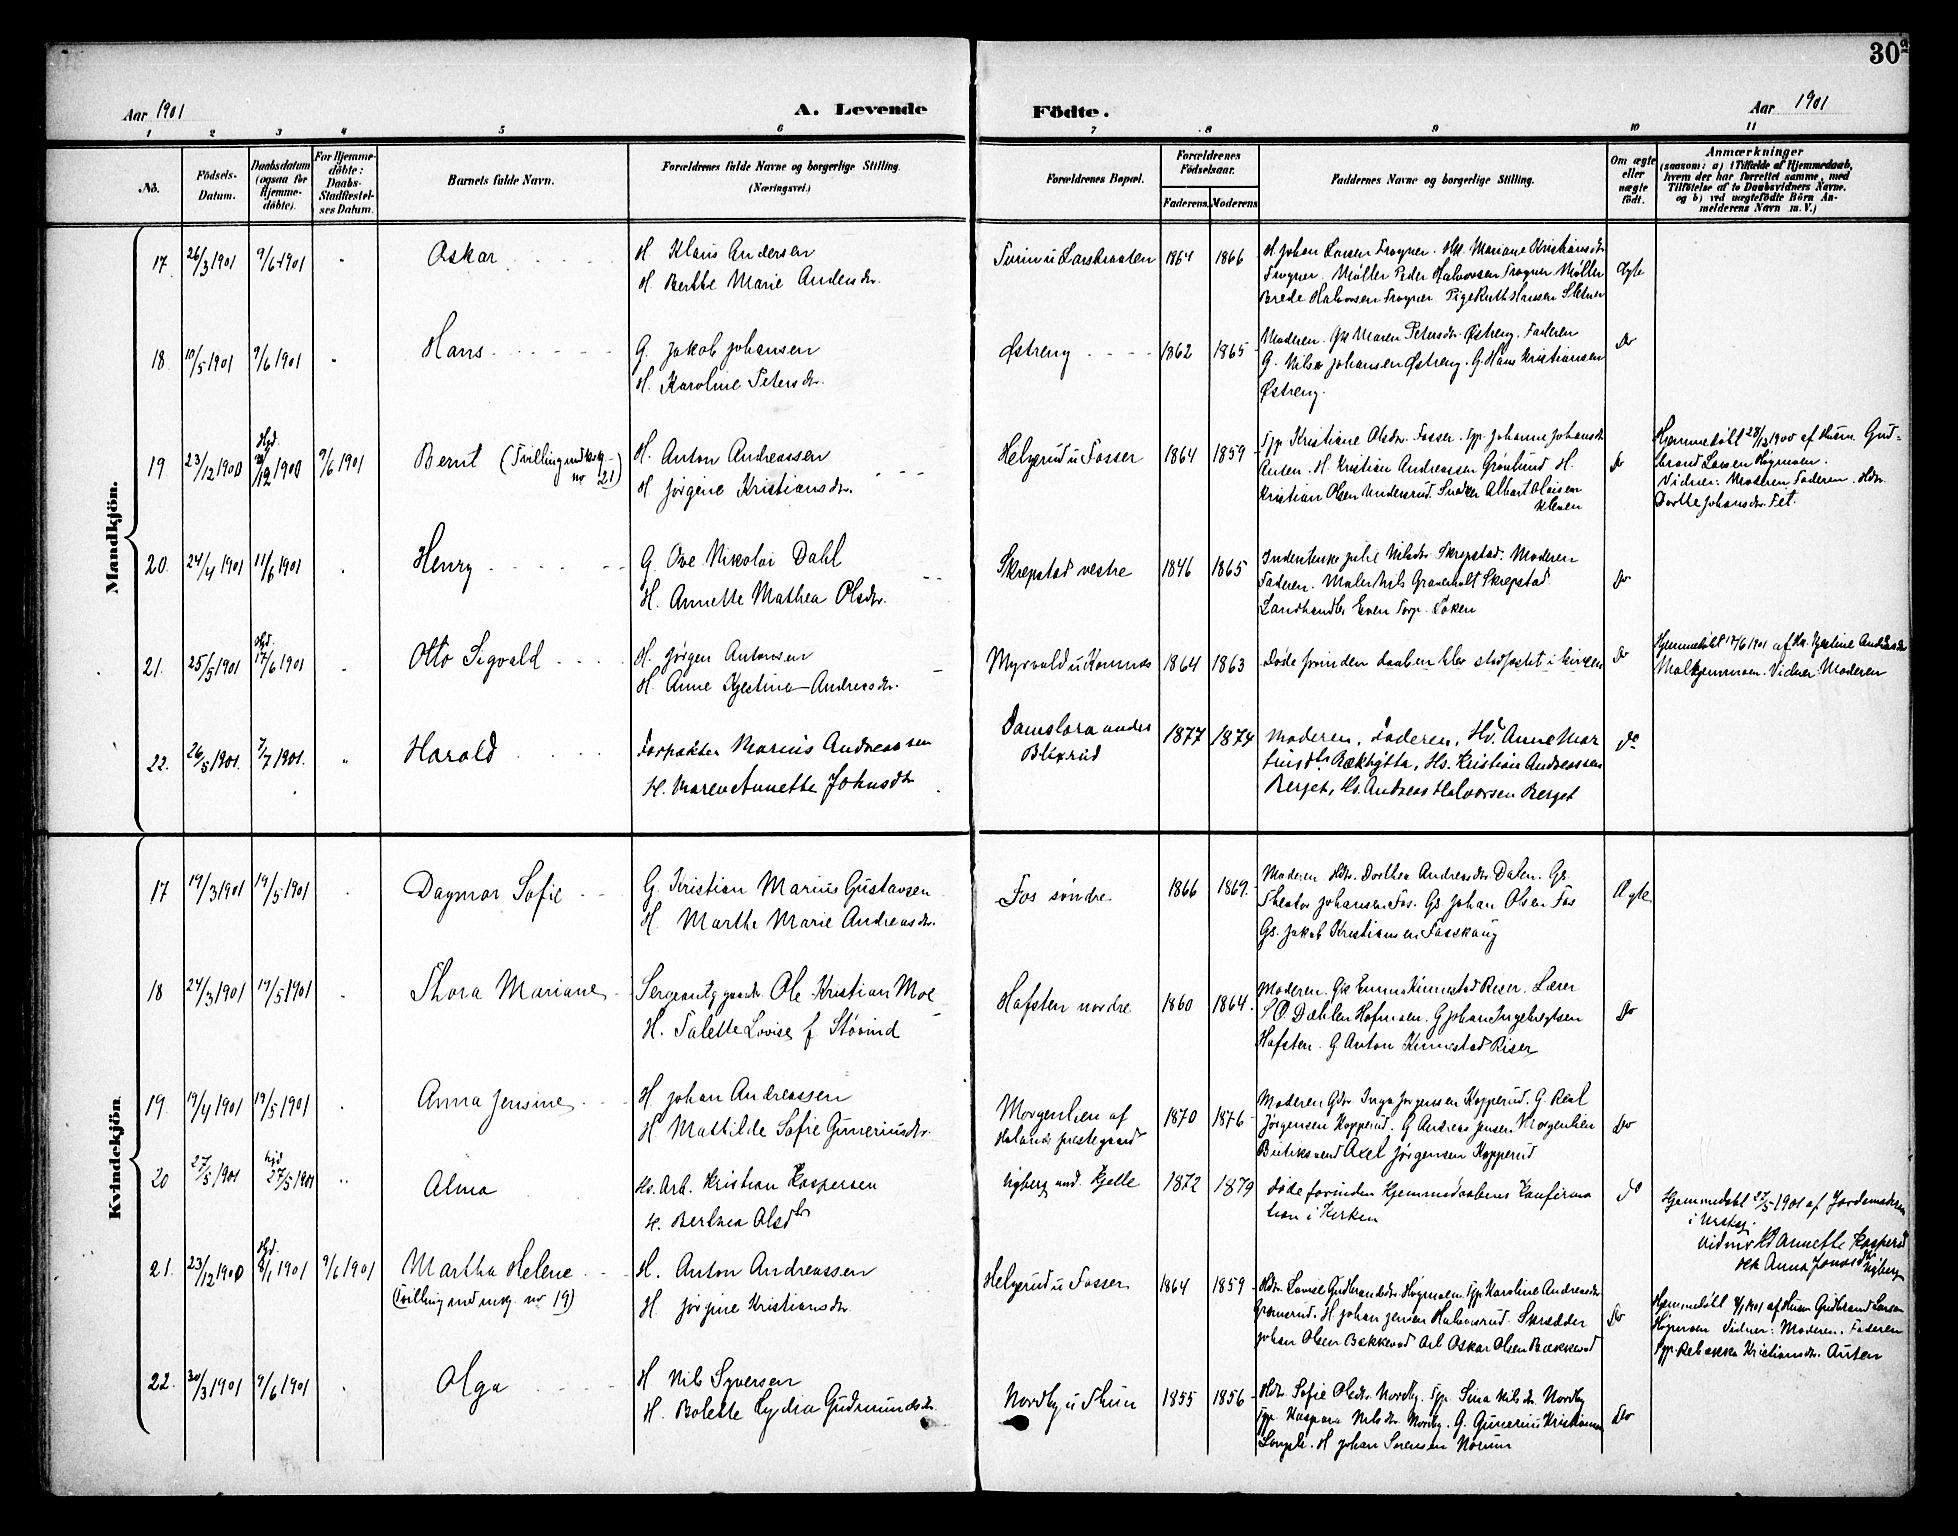 30
Aar 1901
A. Levende
Födte.
Aar 1901
1 2 3 4 5 6 7 8 9 10 11
No.
Födsels-
Datum.
Daabsdatum
(ogsaa for
Hjemme-
döbte).
For Hjemme-
döbte:
Daabs-
Stadfæstel-
ses Datum.
Barnets fulde Navn.
Forældrenes fulde Navne og borgerlige Stilling.
(Næringsvei.)
Forældrenes Bopæl.
Forældrenes
Födselsaar.
Faderens. Moderens
Faddernes Navne og borgerlige Stilling.
Om ægte
eller
uægte
födt.
Anmærkninger
(saasom: a) i Tilfælde af Hjemmedaab,
hvem der har forrettet samme, med
Tilföielse af to Daabsvidners Navne.
og b) ved uægtefödte Börn An-
melderens Navn m. V.)
Mandkjön.
17. 26/3 1901 9/6 1901 - Oskar
H Klaus Andersen
H. Berthe Marie Andersdr.
1864 1866
H Johan Larsen Frogner. Mariane Kristiansdr
Frogner. Møller Peder Halvorsen Frogner Møller
Brede Halvorsen Frogner. Pige Ruth Hansen Sletner
Ægte
18. 10/5 1901 9/6 1901 - Hans
G. Jakob Johansen
H. Karoline Petersdr.
Østreng 1862 1865
Moderen. Maren Petersdr. Østreng. Faderen
G. Nils Johansen Østreng. G. Hans Kristiansen
Østreng.
Do
19 23/12 1900 Hjd. 28/12 1900 9/6 1901 Bernt (Tvilling med
no 21)
H. Anton Andreassen
H Jørgine Kristiansdr.
Helgerud u Fosser 1864 1859
Tjp Kristiane Olsdr. Fosser. Tjp. Johanne Johansdr
Auten. H. Kristian Andreassen Grønlund H.
Kristian Olsen Undesrud. Snedker Albert Olaisen
Kleven
Do
Hjemmedøbt 28/12 1900 af Husm. Gud-
brand Larsen Høgmoen.
Vidner: Moderen Faderen.
Dorthe Johansdr. Fet.
20. 24/4 1901 11/6 1901 . Henry
G. Ove Nikolai Dahl
H. Annette Mathea Olsdr.
Skrepstad vestre 1846 1865
Julie Nilsdr Skrepstad. Moderen
Faderen. Maler Nils Gravenholt Skrepstad
Landhandler Even Torp. Løken
Do
21. 25/5 1901 Hjd. 17/6 1901 - Otto Sigvald
H. Jørgen Antonsen
H. Anne Kjestine Andreasdr.
Myrvold u Komnes 1864 1863
Døde førinden daaben blev stadfæstet i kirken
Do
Hjemmedøbt 17/6 1901 af Kjestine Andreasdr
Vidner: Moderen
22. 26/5 1901. 7/7 1901. " Harald
Forpakter Marius Andreassen
H. Maren Annette Johnsdtr
under
Blixrud
1877 1874
Moderen, Faderen, Anne Mar
tinsdtr Bækhytta, Hs. Kristian Andreassen
Berget, Hs. Andreas Halvorsen Berget
do
Kvindekjön.
17 19/3 1901 19/5 1901 . Dagmar Sofie
G. Kristian Marius Gustavsen
H. Marthe Marie Andreasdr.
Fos søndre 1866 1869
Moderen Dorthea Andreasdr Dalen. Gs.
Theodor Johansen Fos. Gs. Johan Olsen Fos
Gs. Jakob Kristiansen Fosskaug
Ægte
18 24/3 1901 19/5 1901 . Thora Mariane
Sergeant Ole Kristian Moe
H. Talette Lovise f. Støvind
Hafsten nordre 1860 1864.
Moderen. Emma Kinnestad Riser. Lærer
Dæhlen Hofmoen. G Johan Ingebregtsen
Hafsten. G Anton Kinnestad Riser
Do
19. 19/4 1901 19/5 1901 . Anna Jensine
H Johan Andreassen
H Mathilde Sofie Guneriusdr.
Morgenlien af
Holands præstegaard
1870 1876
Moderen Inga Jørgensen Kopperud. G. Real
Jørgensen Kopperud. G Andreas Jensen Morgenlien
Butiksvend Axel Jørgensen Kopperud
Do
20 27/5 1901 hjd 27/5 1901 " Alma
Hs. Arb. Kristian Kaspersen
H. Berthea Olsdtr
und. Kjelle 1872 1879
Døde forinden Hjemmedaabens Konfirma
tion i Kirken
do
Hjemmedøbt 27/5 1901 af Jordemoderen
i Urskog.
Vidner Annette Kasperud
Anna Jonsd
21. 23/12 1900 Hjd. 8/1 1901 9/6 1901 Martha Helene
(Tvilling med no 19)
H. Anton Andreassen
H Jørgine Kristiansdr.
Helgerud u Fosser 1864 1859
Lovise Gudbrandsdr. Høgmoen. Tjp Karoline Andreasdr
H. Johan Jensen Halvorsrud. Skrædder
Johan Olsen Bækkevad Arb Oskar Olsen Bækkevad
Do
Hjemmedøbt 8/1 1901 af Husm Gudbrand Larsen
Høgmoen Vidner: Moderen. Faderen
Tjp. Rebekka Kristiansdr. Auten
22. 30/3 1901 9/6 1901 . Olga
H Nils Syversen
H. Bolette Lydia Gudmundsdr.
Nordby u Thun 1855 1856
Sofie Olsdr Nordby. Tjp. Sina Nilsdr Nordby
Tjp. Kaspara Nilsdr Nordby. G. Gunerius Kristiansen
H Johan Sørensen Norum
Do